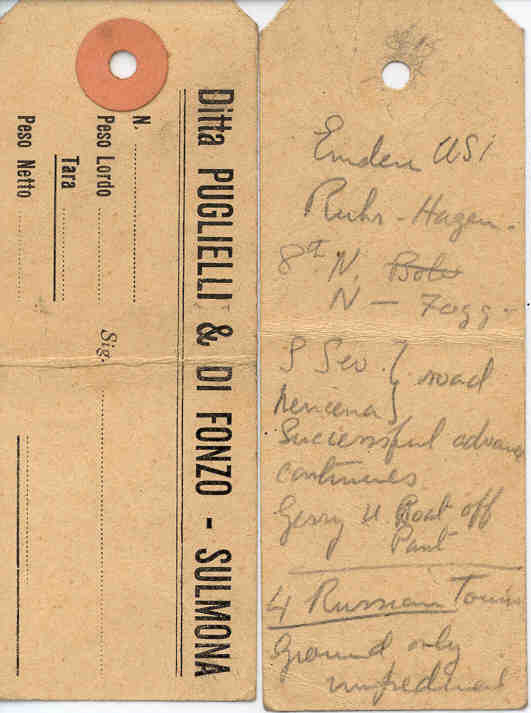 Ditta PUGLIELLI & DI FONZO - SULMONA
N.
Peso Lordo
Tara
Peso Netto
Sig.
Emden USA
Ruhr - Hagen.
8th N.
N - Fogg
S Sev } road
Successful advance
continues.
Gerry U Boat off
4 Russian Towns
Ground only